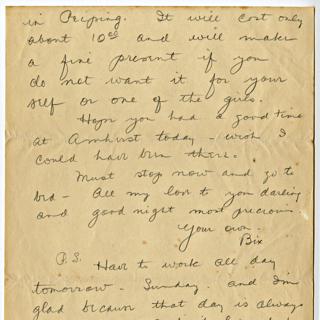 in Peiping. It will cost only
about 10⁰⁰ and will make
a fine present if you
do not want it for your
self or one of the girls.
Hope you had a good time
at Amherst today - wish I
could have been there.
Must stop now and go to
bed - All my love to you darling
and good night most precious
Your own -
Bix
P.S. Have to work all day
tomorrow - Sunday and I'm
glad because that day is always